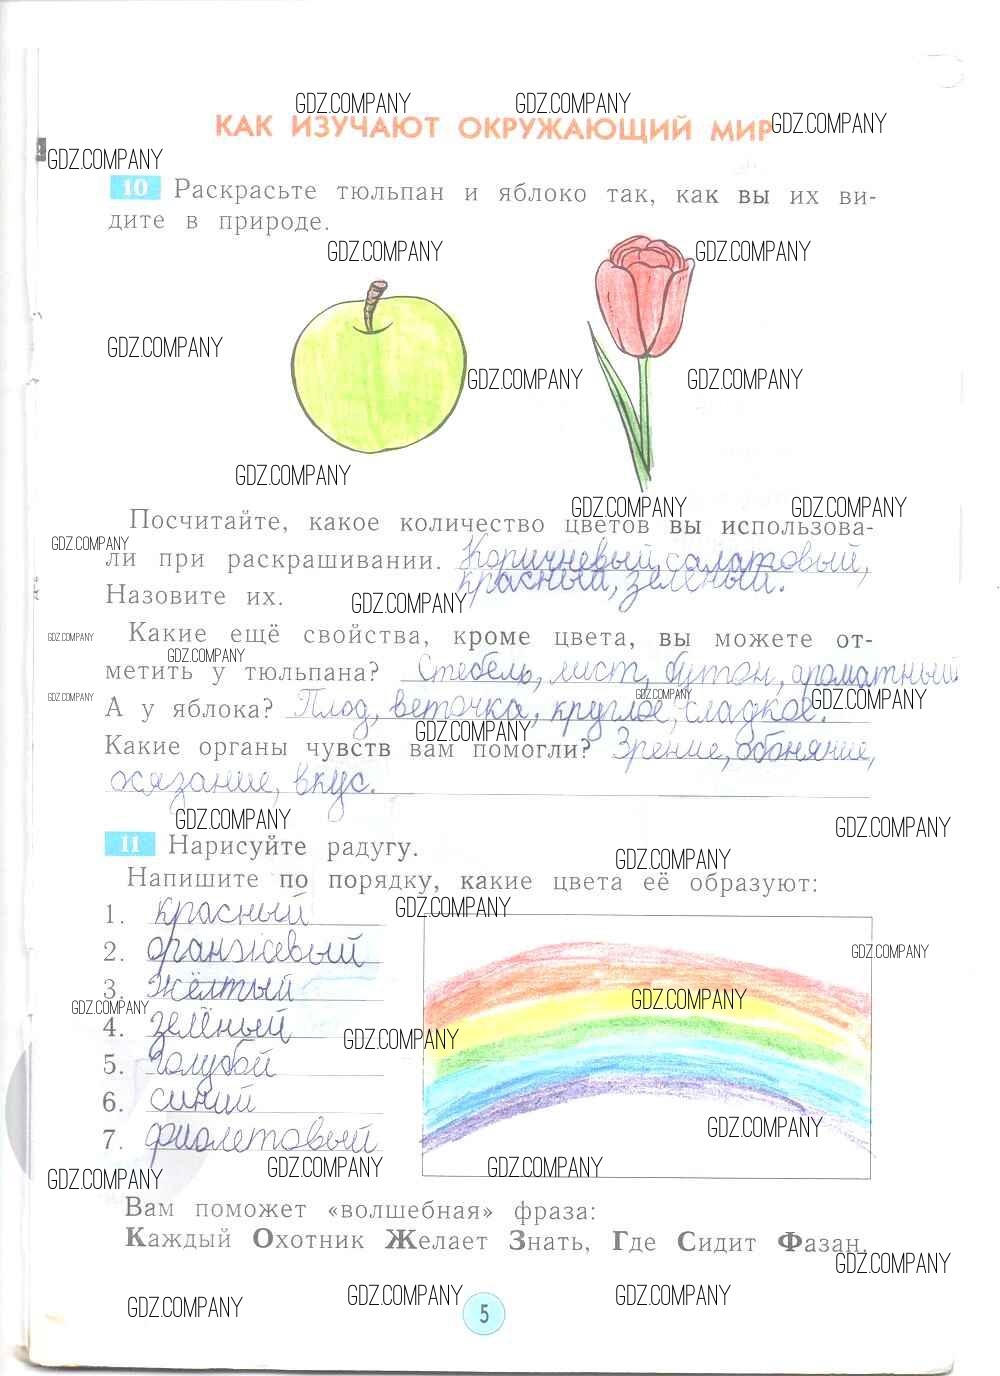 GDZ.COMPANY GDZ.COMPANY
КАК ИЗУЧАЮТ ОКРУЖАЮЩИЙ МИР GDZ.COMPANY
GDZ.COMPANY
10 Раскрасьте тюльпан и яблоко так, как вы их ви-
дите в природе.
GDZ.COMPANY GDZ.COMPANY
GDZ.COMPANY
GDZ.COMPANY GDZ.COMPANY
GDZ.COMPANY
GDZ.COMPANY GDZ.COMPANY
Посчитайте, какое количество цветов вы использова-
GDZ.COMPANY
ли при раскрашивании. Коричневый, салатовый,
красный, зелёный.
Назовите их. GDZ.COMPANY
Какие ещё свойства, кроме цвета, вы можете от-
GDZ.COMPANY
GDZ.COMPANY
метить у тюльпана? Стебель, лист, бутон, ароматный
GDZ.COMPANY GDZ.COMPANY GDZ.COMPANY
А у яблока? Плод, веточка, круглое, сладкое.
GDZ.COMPANY
Какие органы чувств вам помогли? Зрение, обоняние,
осязание, вкус.
GDZ.COMPANY GDZ.COMPANY
11 Нарисуйте радугу.
GDZ.COMPANY
Напишите по порядку, какие цвета её образуют:
GDZ.COMPANY
1. красный
2. оранжевый
GDZ.COMPANY
3. жёлтый
GDZ.COMPANY GDZ.COMPANY
4. зелёный
GDZ.COMPANY
5. голубой
6. синий
GDZ.COMPANY
7. фиолетовый
GDZ.COMPANY GDZ.COMPANY GDZ.COMPANY
Вам поможет «волшебная» фраза:
Каждый Охотник Желает Знать, Где Сидит Фазан.
GDZ.COMPANY
GDZ.COMPANY GDZ.COMPANY GDZ.COMPANY
5